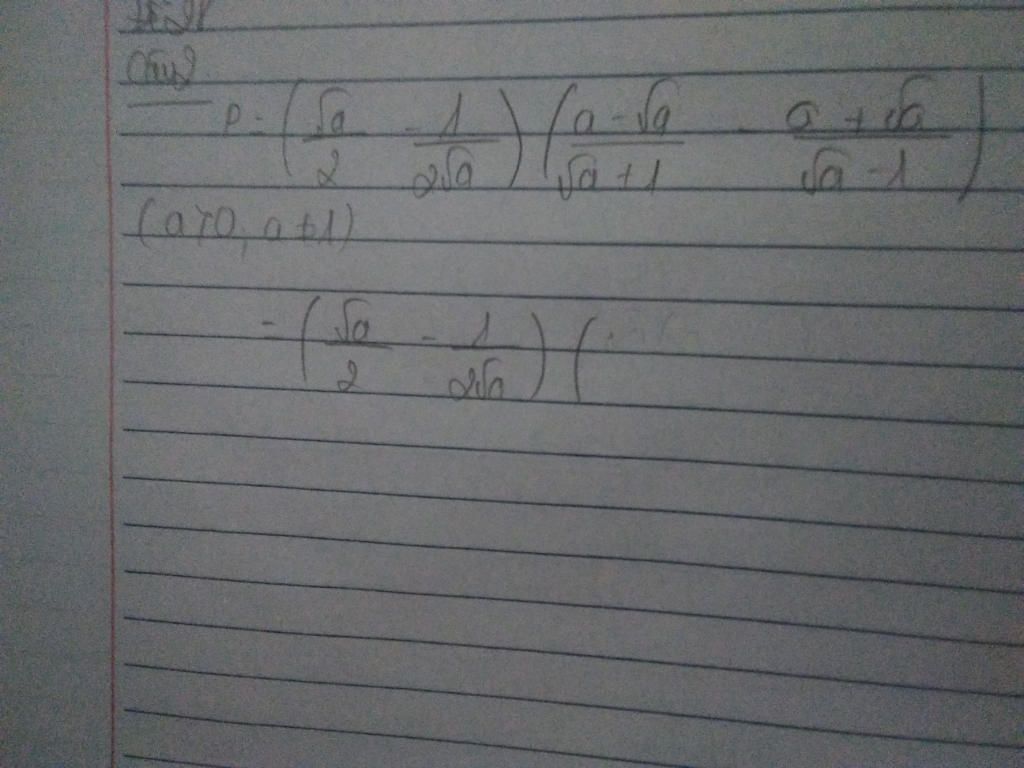 P = ( √a / 2 - 1 / 2√a ) ( a - √a / √a + 1 - a + √a / √a - 1 )
(a > 0, a ≠ 1)
= ( √a / 2 - 1 / 2√a ) (